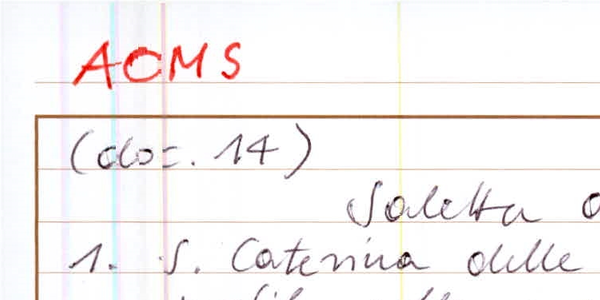 ACMS
(doc. 14)
Saletta
1. S. Caterina delle